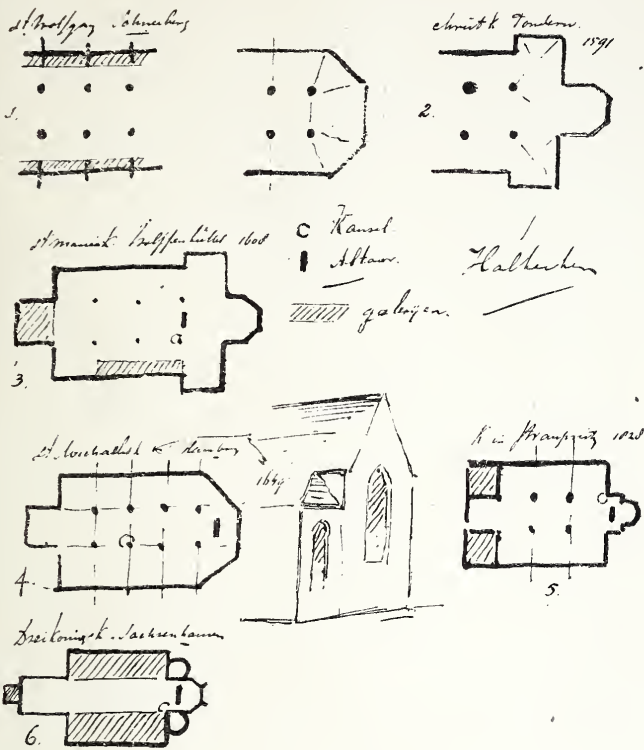 St. Wolfgang Schneeberg
1.
Christk. Tondern.
1591
2.
St. Marienk. Wolffenbüttel 1608
3.
Kansel.
Altaar.
galerijen.
Hallenken
St. Michaelisk Hamburg
1649
4.
K in Straupitz 1828
5.
Dreikönigsk. Sachsenhausen
6.